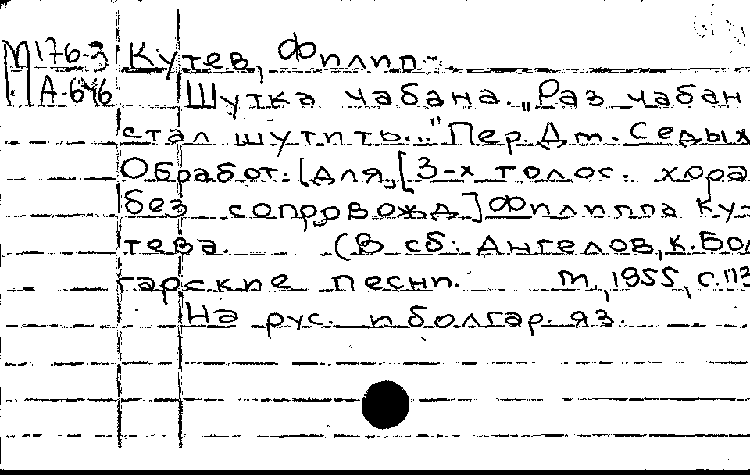 М176-3 Кутев, Филип.
А-646 Шутка чабана. „Раз чабан
стал шутить..." Пер. Дм. Седых
Обработ. [для [3-х голос. хора
без сопровожд] Филиппа Ку-
тева. (В сб: Ангелов, К. Бол
гарские песни. М, 1955, с. 113
На рус. и болгар. яз.